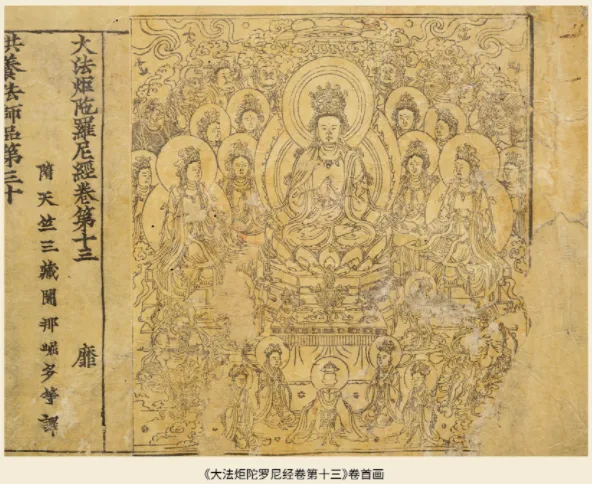 大法炬陀羅尼經卷第十三
靡
隋天竺三藏闍那崛多等譯
供養法師品第三十
《大法炬陀罗尼经卷第十三》卷首画